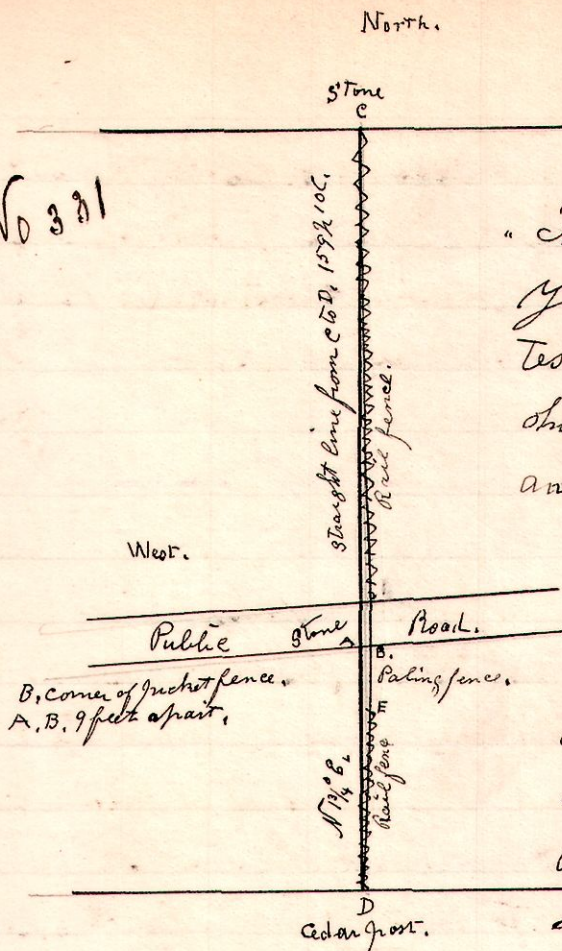 North.
Stone
C
No 381
Straight line from C to D. 159 10 C.
Rail fence.
West.
Public Road.
Stone
A
B.
B. corner of picket fence.
A. B. 9 feet apart.
Paling fence.
E
N 1 3/4° E.
Rail fence
D
Cedar post.